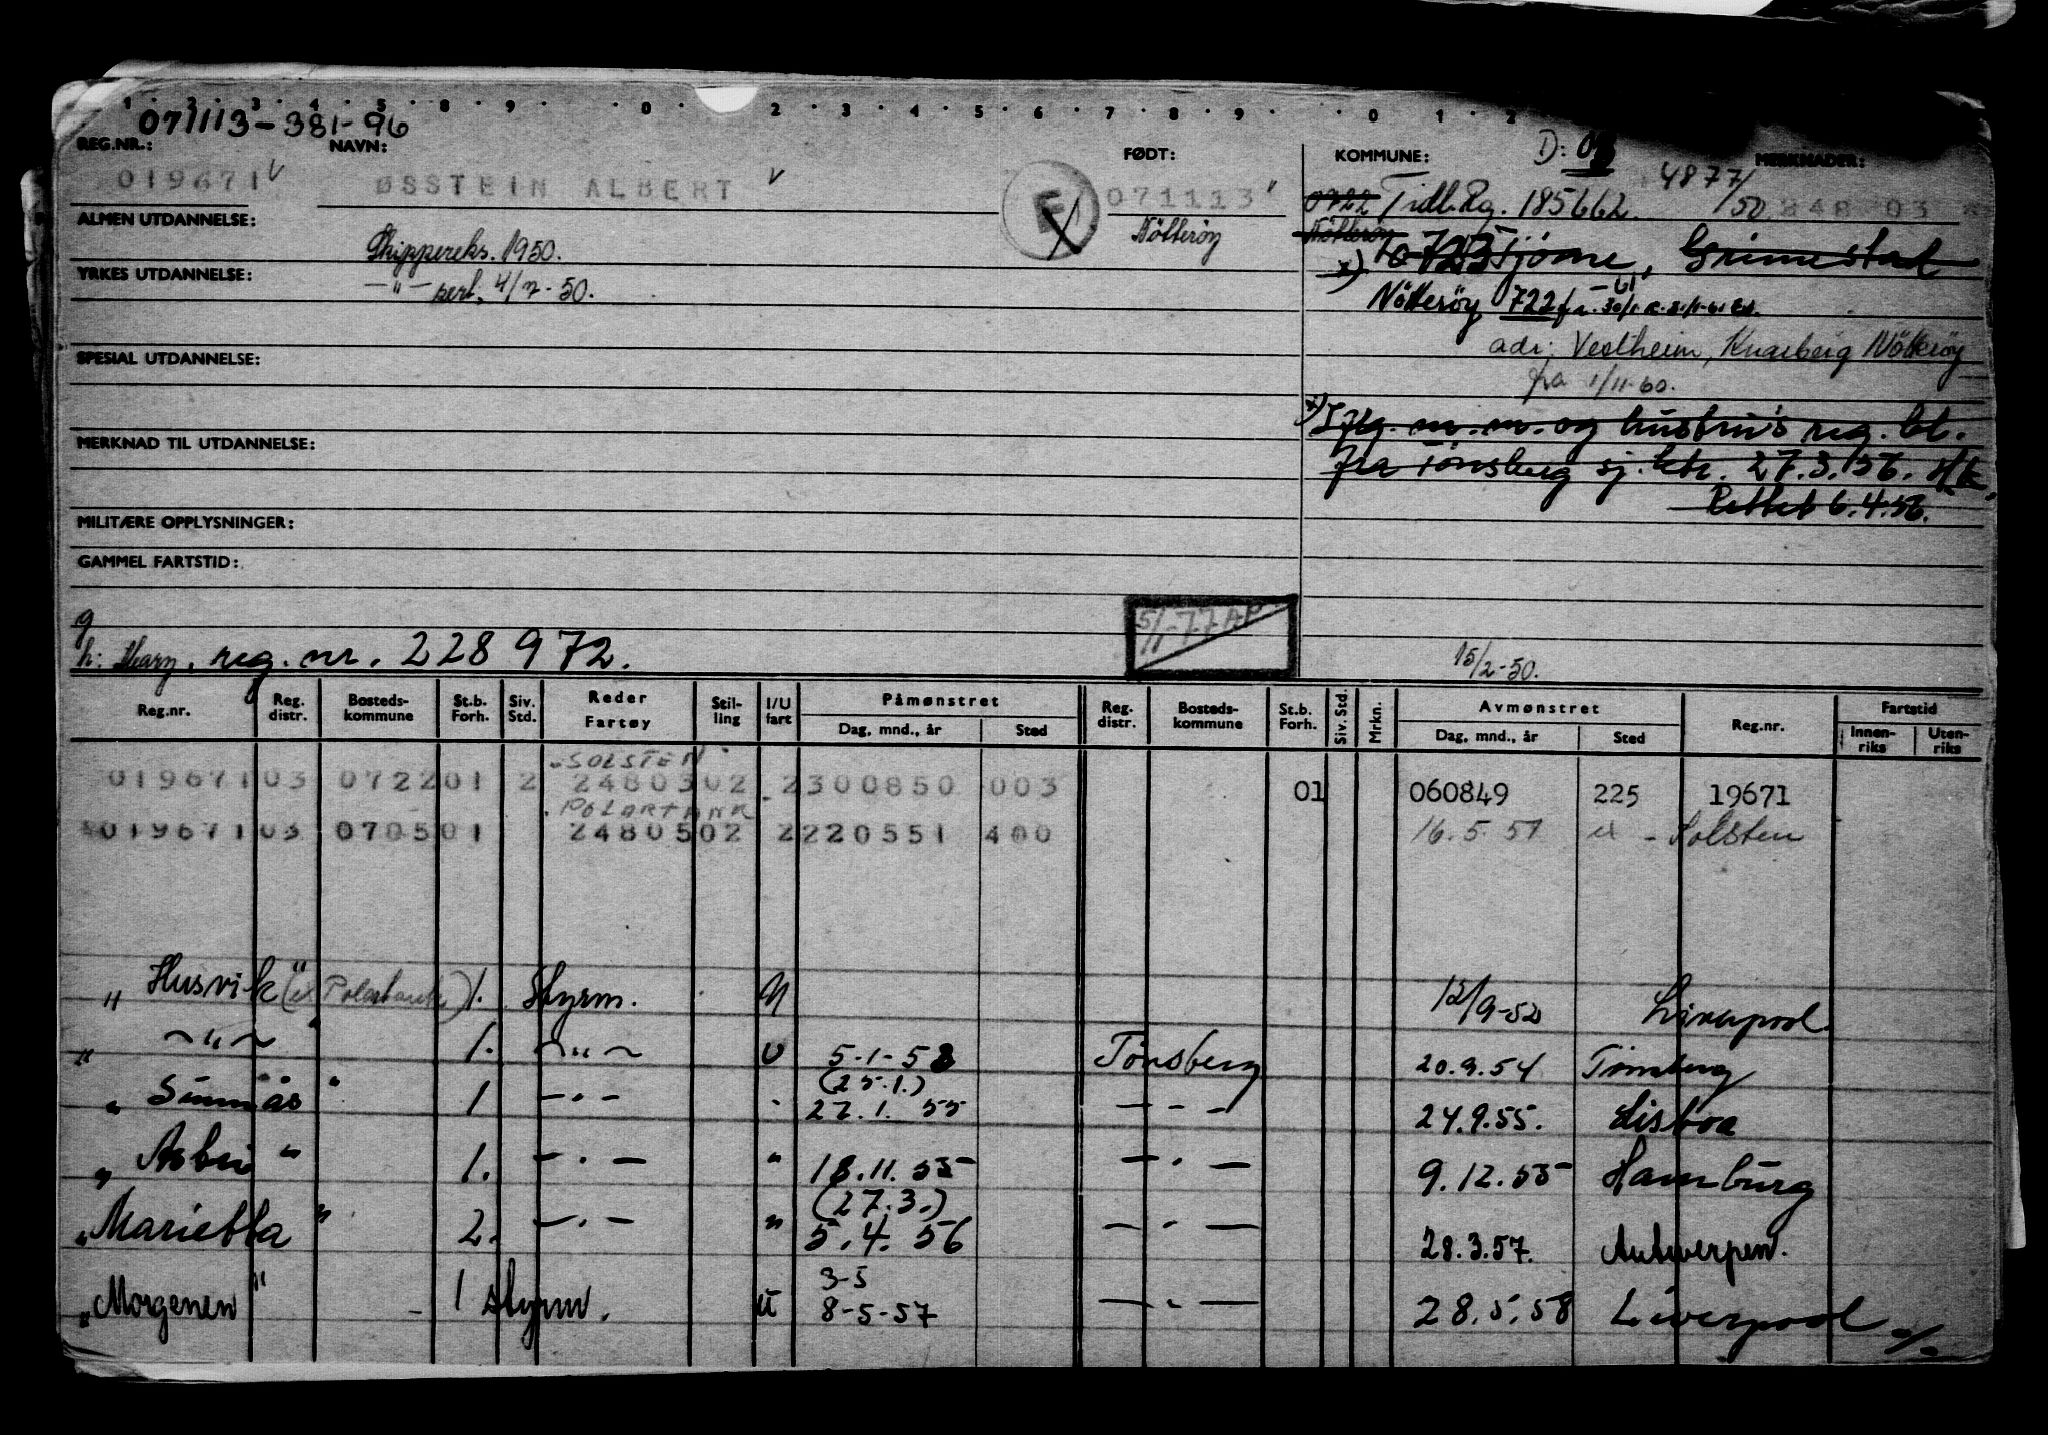 1 · 2 · 3 · 4 · 5 · 8 · 9 · · 0 · 2 · 3 · 4 · 5 · 6 · 7 · 8 · 9 · · 0 · 1 · 2
071113-381-96
REG.NR.: NAVN: FØDT: KOMMUNE: D: MERKNADER:
019671 ØSSTEIN ALBERT F 071113 0722 Tidl. Rg. 185662 4877/50 848 03
ALMEN UTDANNELSE: Nötteröy Nötteröy
Skippereks. 1950. Tjöme, Grimestad
YRKES UTDANNELSE: —"— sert. 4/7-50.
Nötteröy 722
adr: Vestheim, Knarberg Nötteröy
SPESIAL UTDANNELSE:
fra 1/11-60.
x) I flg. m.m. og hustru's reg. bl.
MERKNAD TIL UTDANNELSE:
fra Tönsberg sj. ktr. 27.3.56.
Rettet 6.4.56.
MILITÆRE OPPLYSNINGER:
GAMMEL FARTSTID:
g
5/11-77 AP
h: Mary, reg. nr. 228972.
15/2-50.
Reg.nr. Reg. distr. Bosteds-kommune St.b. Forh. Siv. Std. Reder Fartøy Stil-ling I/U fart Påmønstret Dag, mnd., år Sted Reg. distr. Bosteds-kommune St.b. Forh. Siv. Std. Mrkn. Avmønstret Dag, mnd., år Sted Reg.nr. Fartstid Innen-riks Uten-riks
SOLSTEN
019671 03 0722 01 2 2480302 2300850 003 01 060849 225 19671
POLARTANK
019671 03 0705 01 2480502 2220551 400 16.5.51 - Solsten
"Husvik" (ex Polartank) 1. Styrm. U 12/9-52 Liverpool
" —"— 1. —"— U 5-1-53 Tönsberg 20.9.54 Tönsberg
(25.1.)
" Sunnås " 1 —"— 27.1.55 —"— 24.9.55. Lisboa
" " 1. —"— " 18.11.55 —"— 9.12.55 Hamburg
(27.3.)
"Marietta" 2. —"— " 5.4.56 —"— 28.3.57. Antwerpen.
3-5
"Morgenen" 1 styrm. U 8-5-57 —"— 28.5.58 Liverpool